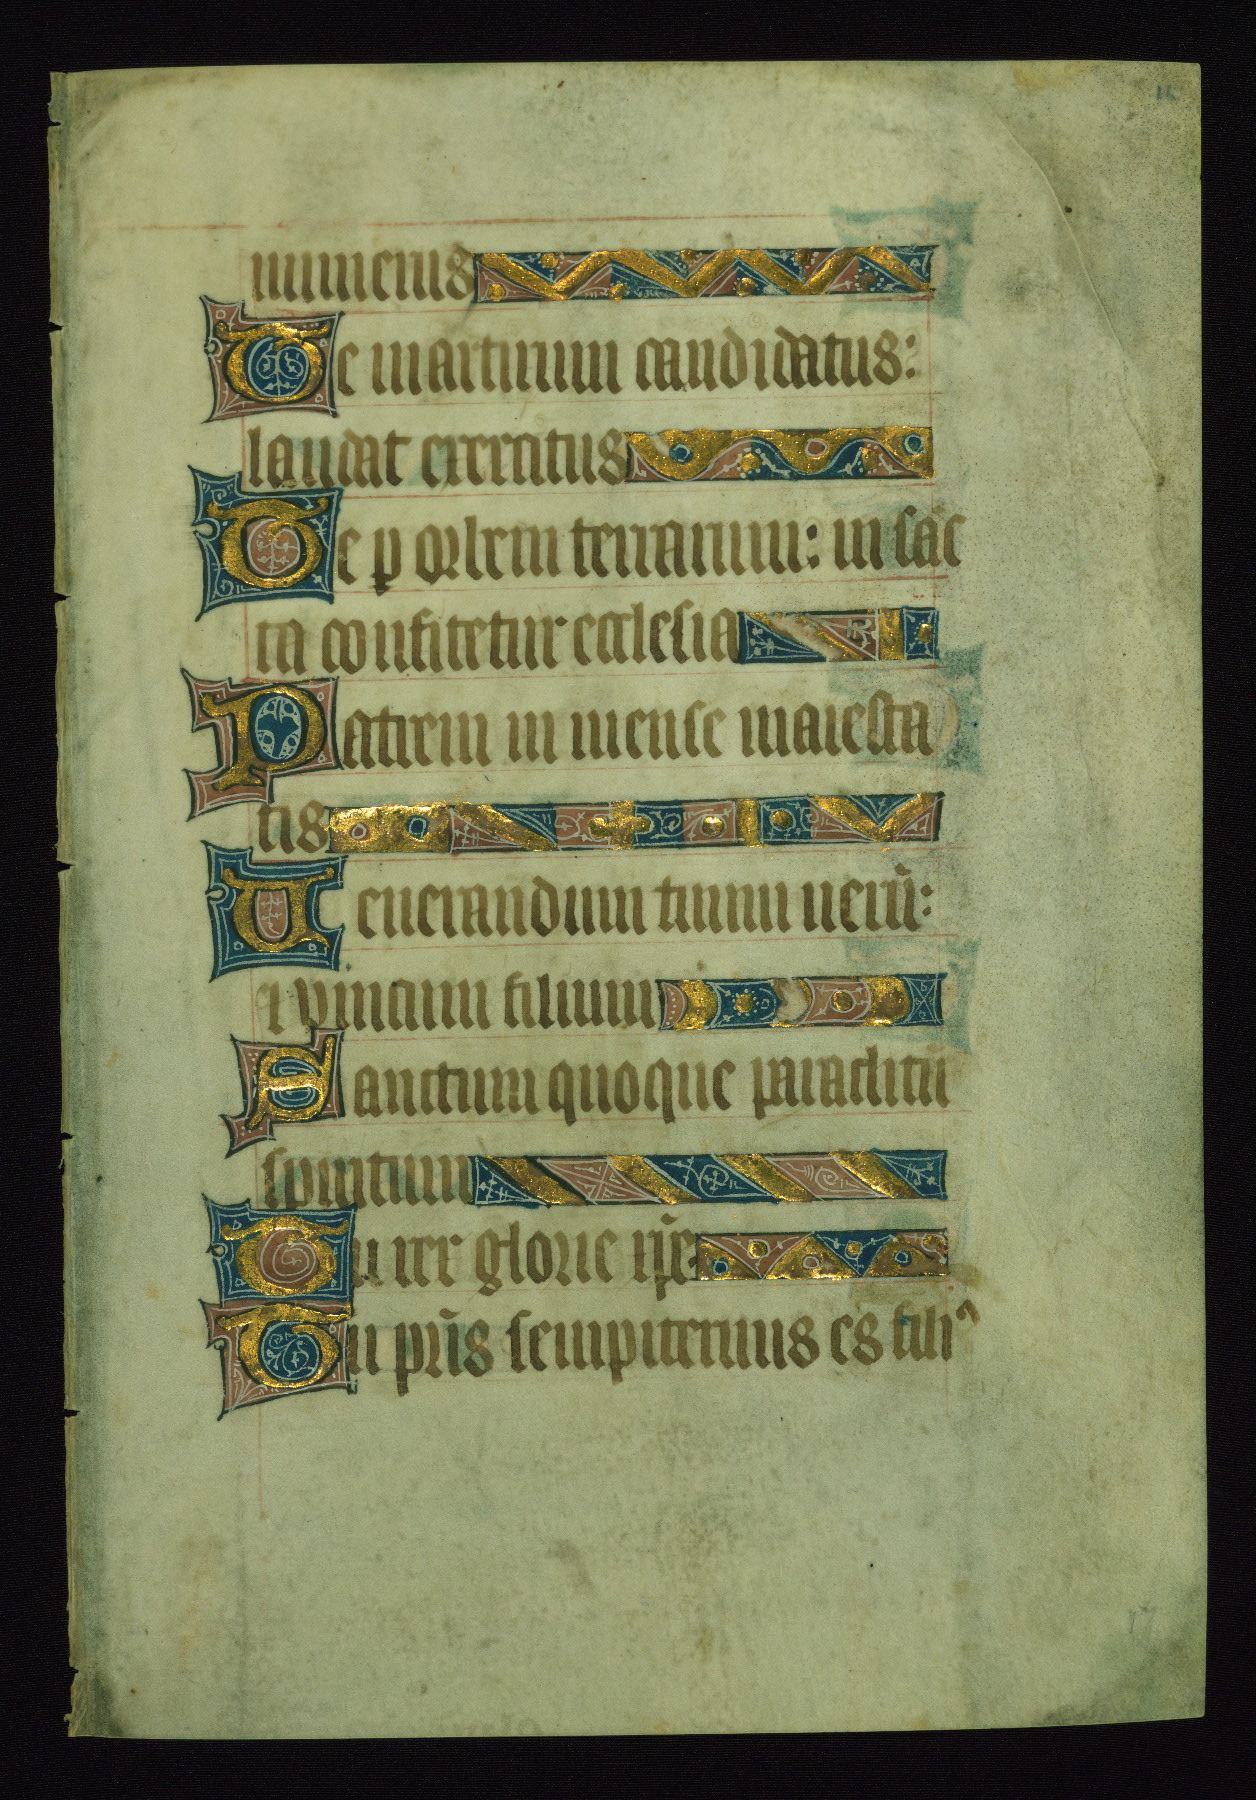 16
numerus
Te martirum candidatus:
laudat exercitus
Te p orbem terrarum: in sāc
ta confitetur ecclesia
Patrem inmense maiesta
tis
Uenerandum tuum uerū:
⁊ unicum filium
Sanctum quoque paraclitū
spiritum
Tu rex glorie xp̄e
Tu pr̄is sempiternus es filiꝰ
17